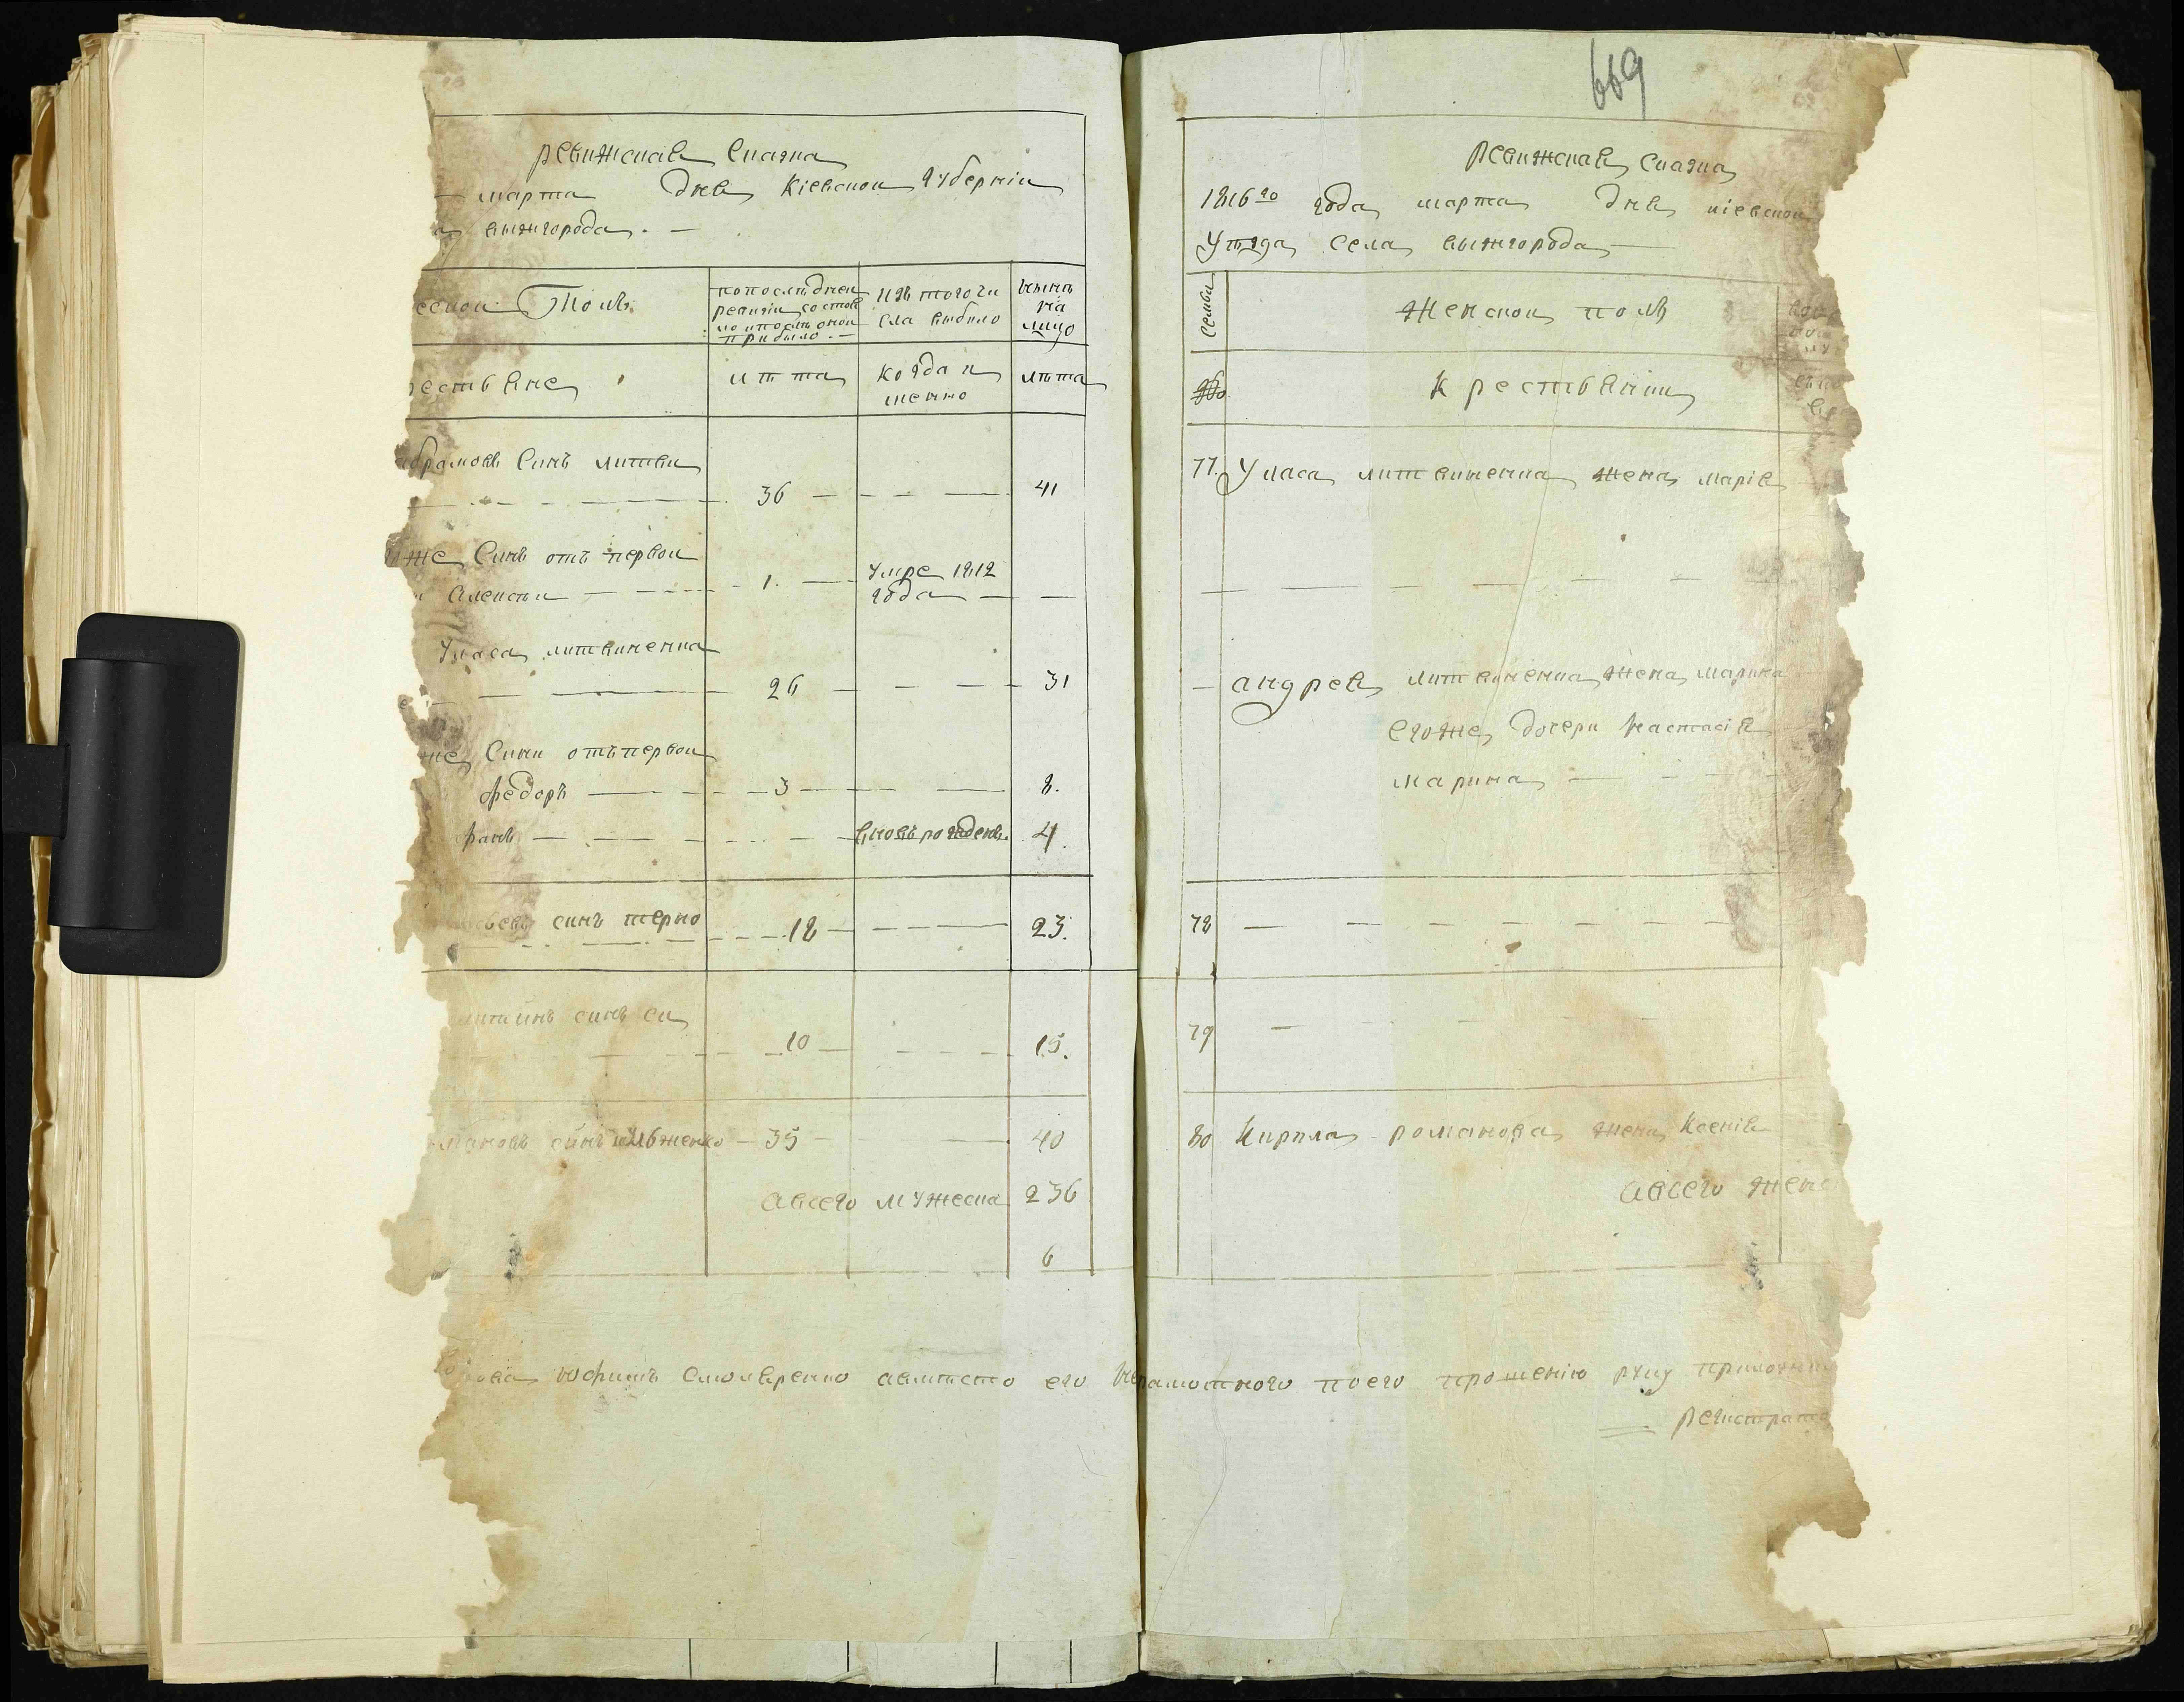 Ревижская Сказка
марта дня Кіевской Губерніи
вышгорода. —
еской Полъ.
попослѣдней
ревизіи состоя
ло ипослѣ оной
прибыло. —
изъ тогочи
сла выбыло
нынѣ
на
лицо
рестьяне
лѣта
когда и
менно
лѣта
абрамовъ Синъ литви
36 — 41
же Синъ отъ первой
Алексѣи — 1. — умре 1812
года —
Уласа литвиненка
26 — 31
же Сини отъ первой
Федоръ — 3 — 8.
вновъ рожденъ. 4.
синъ терно
18 — 23.
синъ си
10 — 15.
мановъ синъ — 35 — 40
Авсего мужеска 236
6
669
Ревижская Сказка
1816го года марта дня кіевской
Уѣзда Села вышгорода —
Семьи
Женской полъ
Крестьянки
77. Уласа литвиненка жена марія
— андрея литвиненка жена марина
егоже дочери Настасія
марина —
78 —
79 —
80 Кирила романова жена Ксенія
Авсего женс
его неграмотного поего прошенію руку приложил
Регистрато